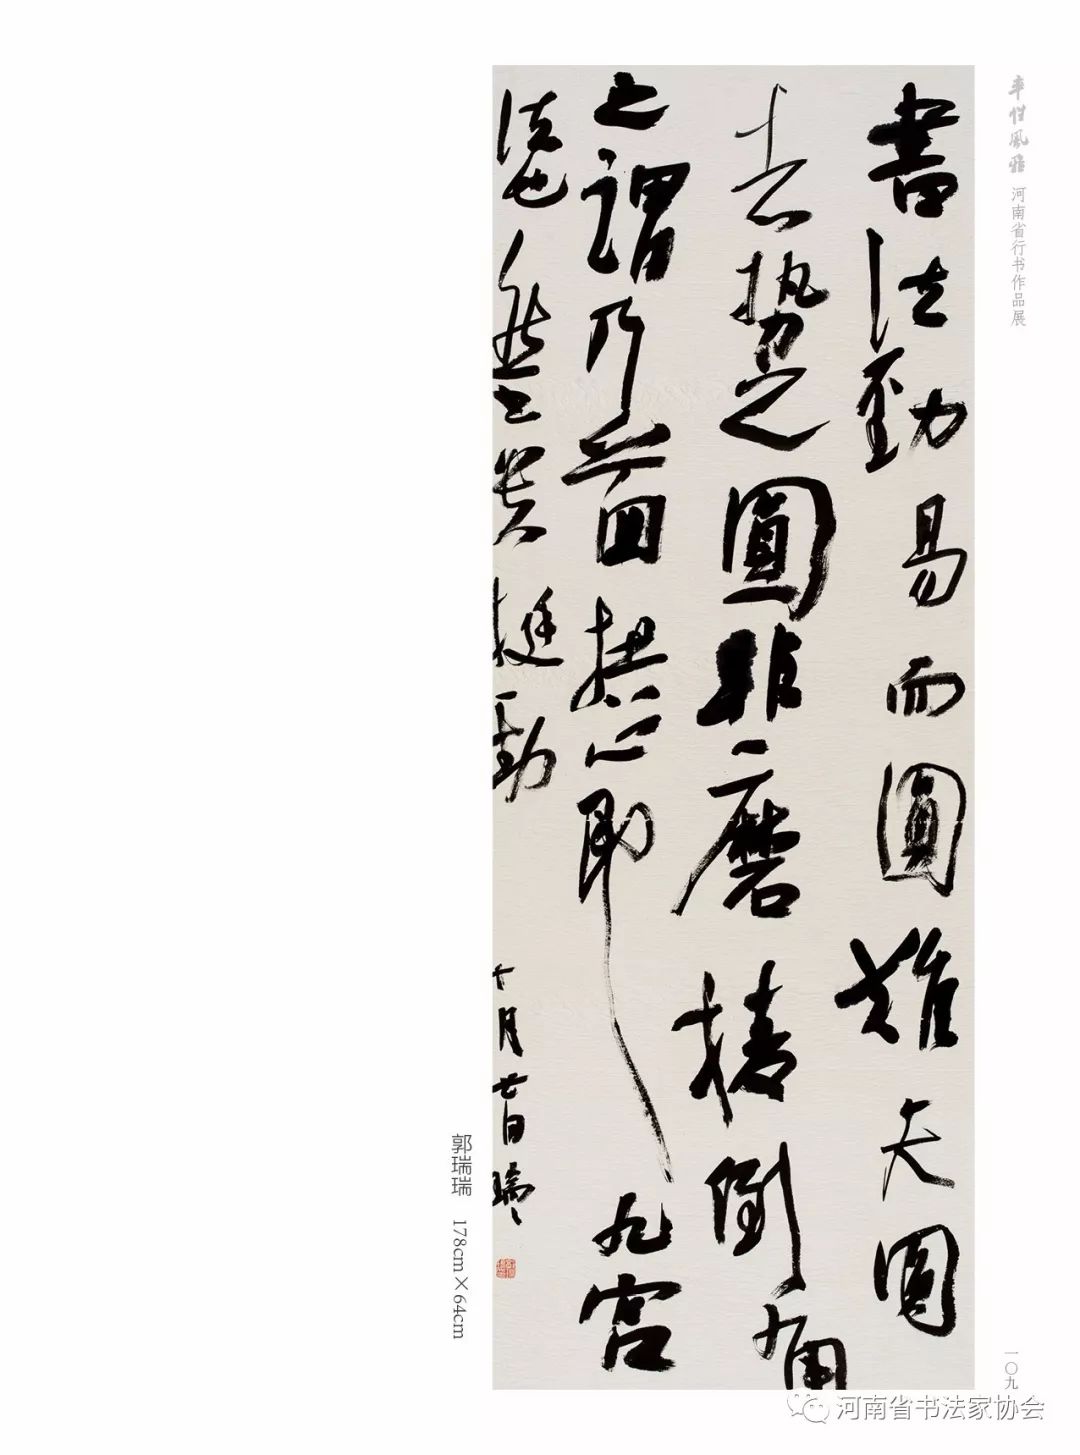 率性風雅 河南省行书作品展
書法勁易而圓難夫圓
者勢之圓非磨棱倒角
之謂乃八面拱心即九宮
法也然書貴挺勁
十月廿日瑞〻
郭瑞瑞 178cm×64cm
一〇九
河南省书法家协会